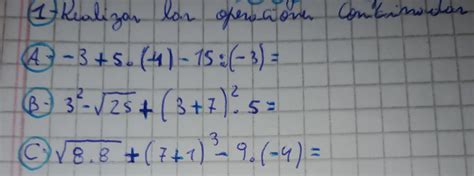 1-Realizar las operaciones combinadas
A- -3+5.(-4)-15:(-3)=
B- 3²-√25+(3+7)².5=
C- √8.8+(7+1)³-9.(-4)=